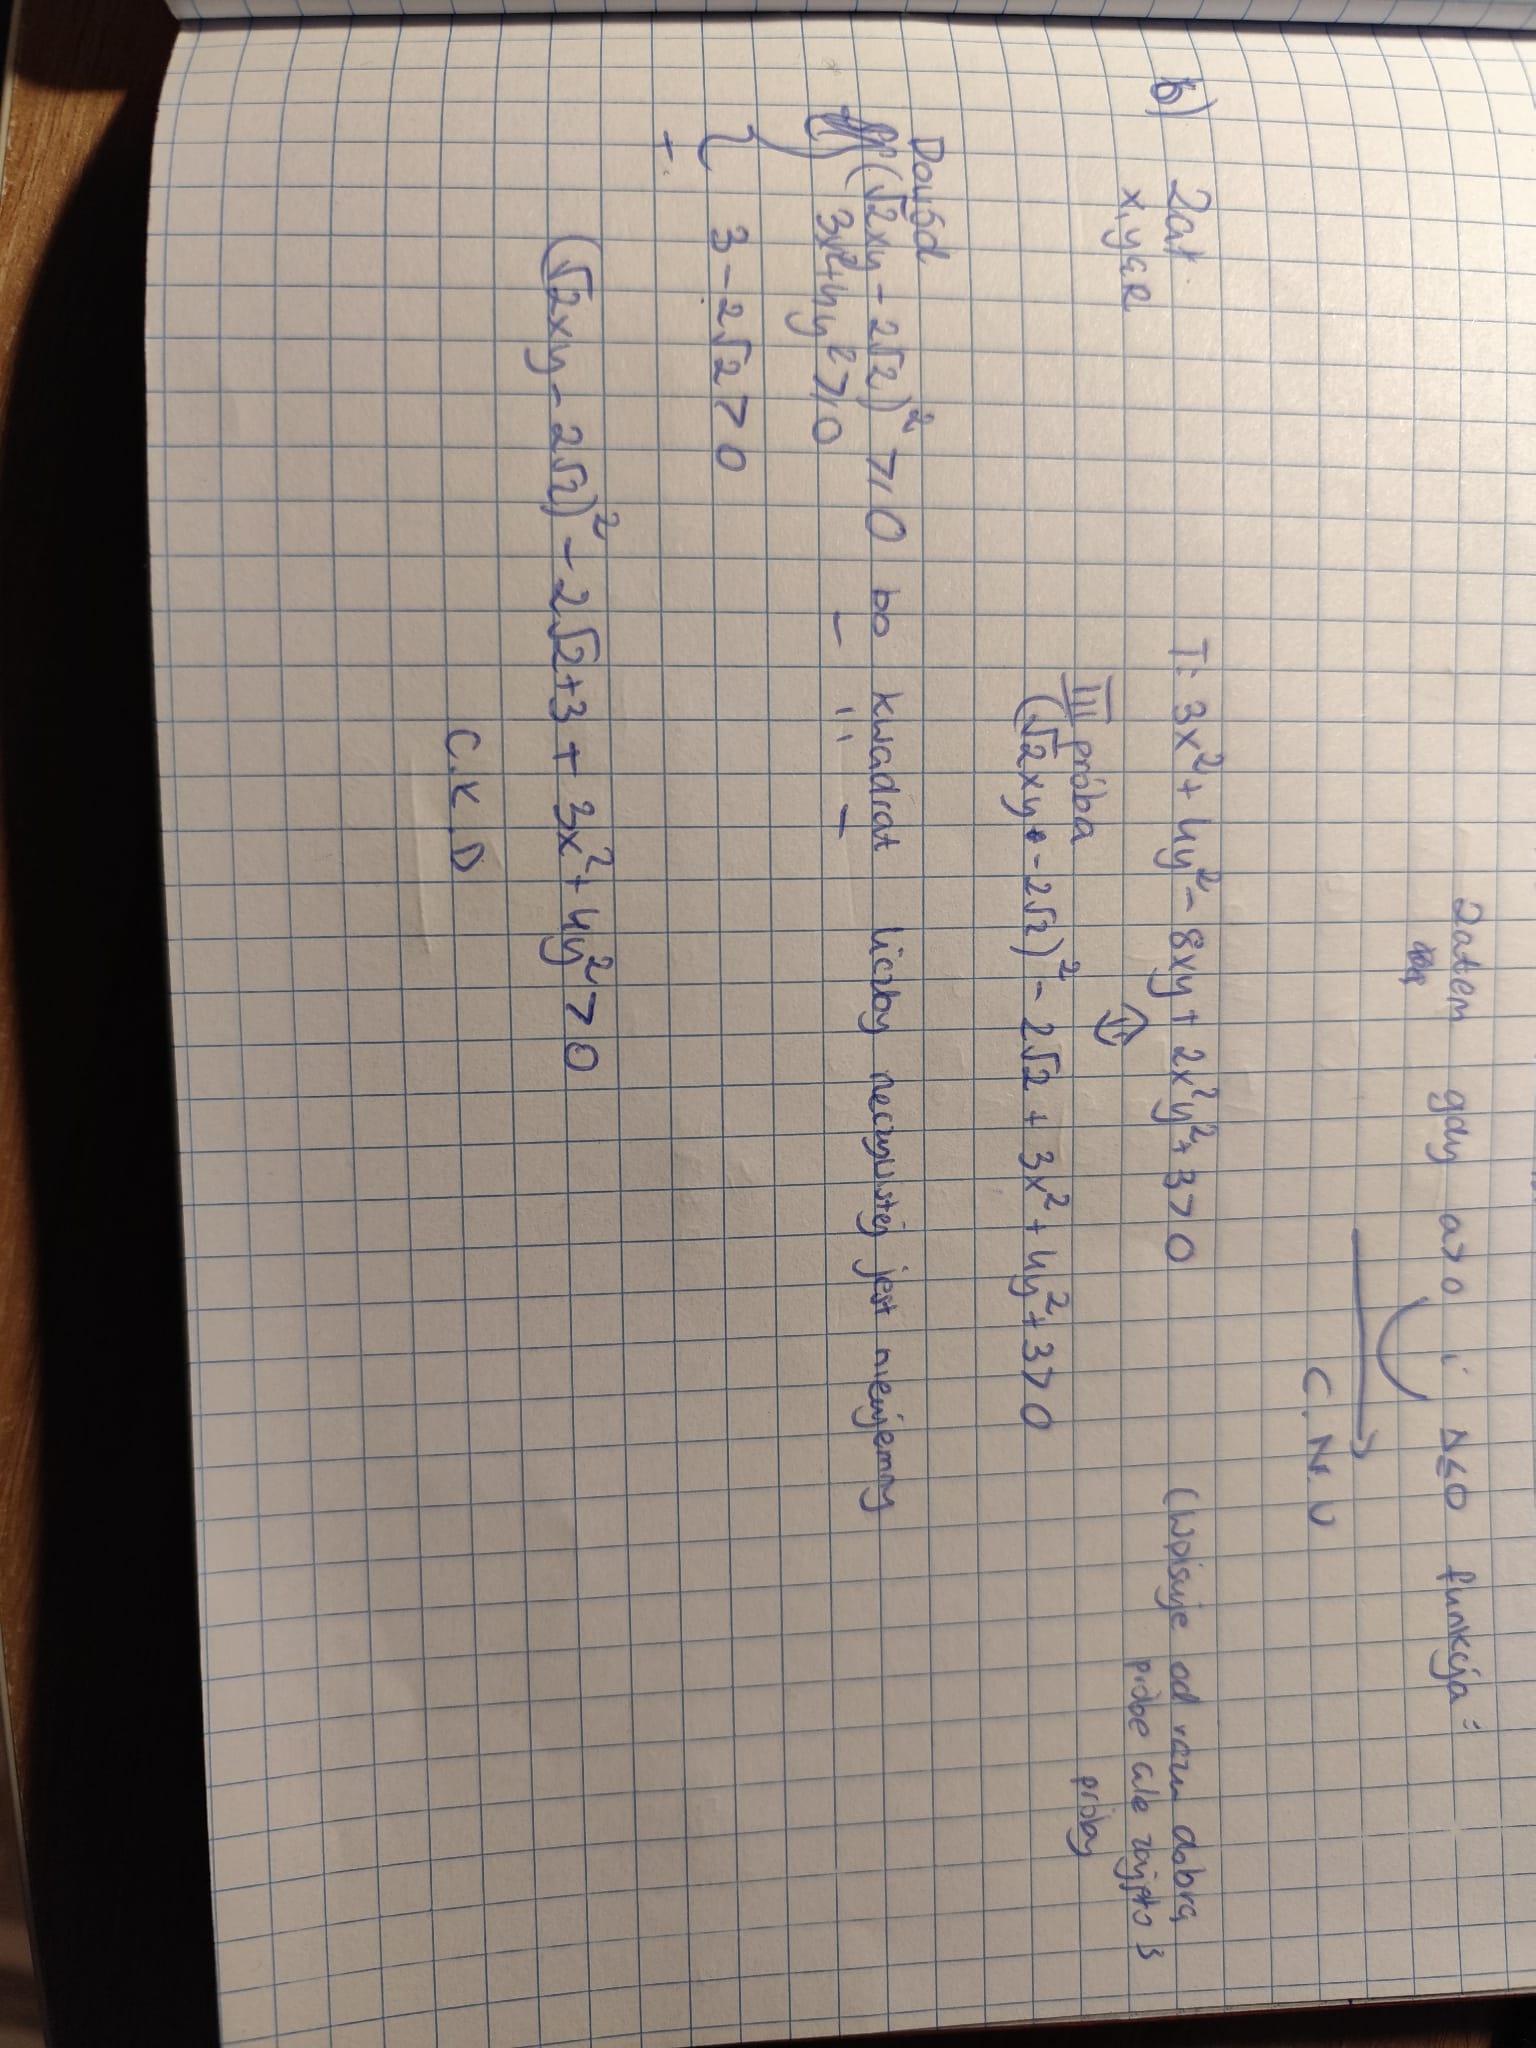 Zatem gdy a>0 i Δ≤0 funkcja:
C.N.U
b) Zał T: 3x²+4y²-8xy+2x²y²+3>0 (Wpisuje od razu dobrą
x,y∈R próbe ale zajęło 3
próby
⇕
III próba
(√2xy-2√2)²-2√2+3x²+4y²+3>0
Dowód
(√2xy-2√2)²⩾0 bo kwadrat liczby rzeczywistej jest nieujemny
3x²+4y²⩾0 - ıı -
3-2√2>0
+
(√2xy-2√2)²-2√2+3+3x²+4y²>0
C.K.D